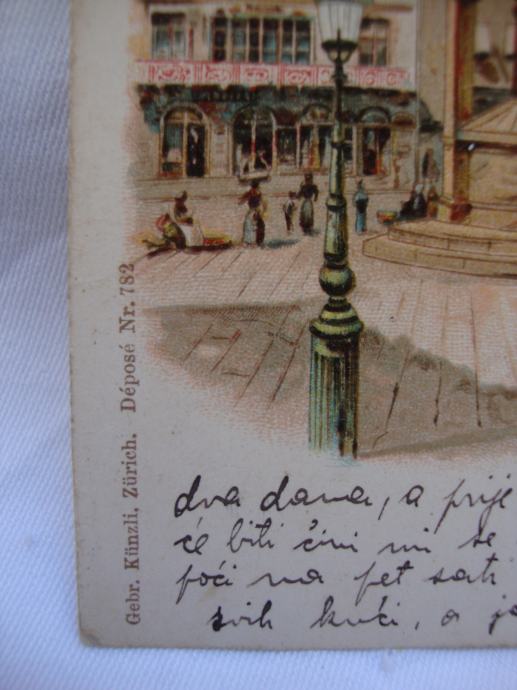 Gebr. Künzli, Zürich. Déposé Nr. 782
dva dana, a prije
će biti čini mi se
poći na pet sati
svih kući, a